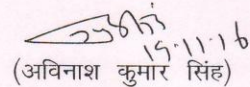 15.11.16
(अविनाश कुमार सिंह)